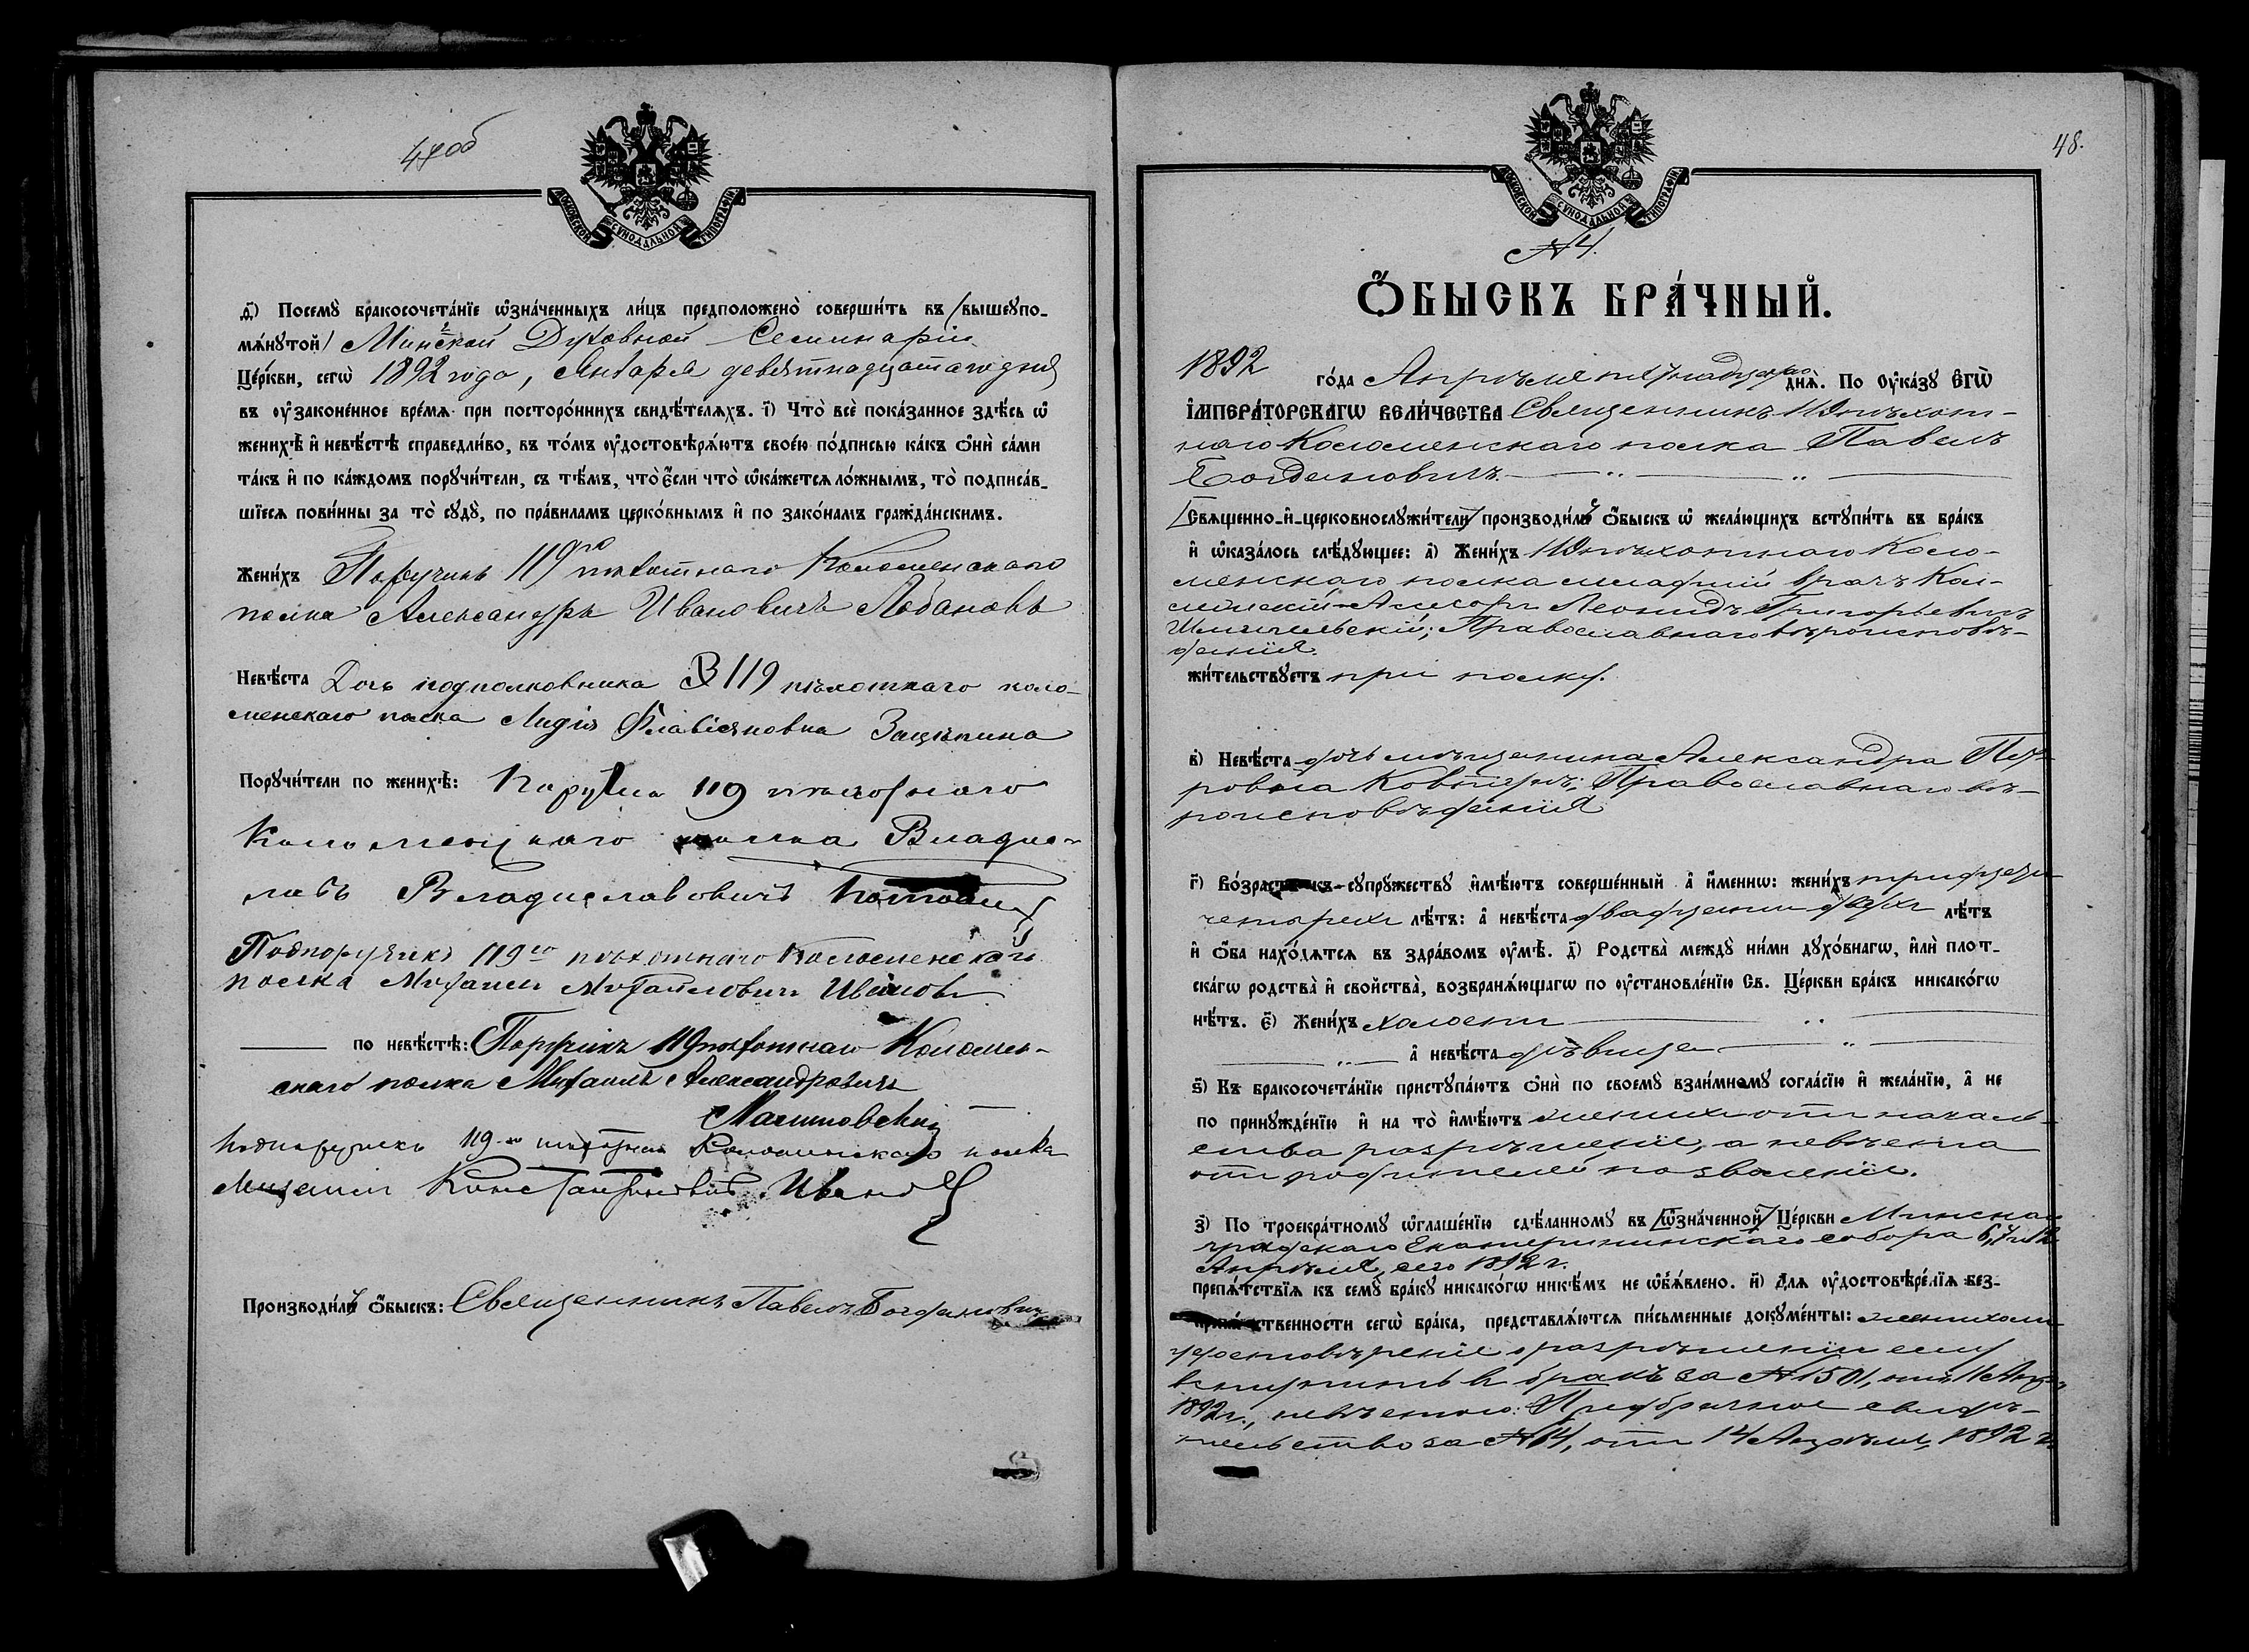 47об
МОСКОВСКОЙ СѴНОДАЛЬНОЙ ТИПОГРАФІИ
д҃і) Посемꙋ̀ бракосочета́нїе ѡ҆зна́ченныхъ ли́цъ предположено̀ соверши́ть въ /вышеꙋпо-
мѧ́нꙋтой/ Минской Духовной Семинаріи
Це́ркви, сегѡ̀ 1892 года, Января девятнадцатаго дня
въ ᲂу҆зако́ненное вре́мѧ при посторо́ннихъ свидѣ́телѧхъ. і҃) Что̀ всѐ пока́занное здѣ́сь ѡ҆
женихѣ̀ и҆ невѣ́стѣ справедли́во, въ то́мъ ᲂу҆достовѣрѧ́ютъ свое́ю по́дписью ка́къ ѻ҆нѝ са́ми
та́къ и҆ по ка́ждомъ порꙋчи́тели, съ тѣ́мъ, что̀ є҆́сли что̀ ѡ҆ка́жетсѧ ло́жнымъ, то̀ подписа́в-
шїесѧ пови́нны за то̀ сꙋдꙋ̀, по пра́виламъ церко́внымъ и҆ по зако́намъ гражда́нскимъ.
Жени́хъ Поручикъ 119го пѣхотнаго Коломенскаго
полка Александръ Ивановичъ Лобановъ
Невѣ́ста Дочь подполковника 119 пѣхотнаго коло-
менскаго полка Лидія Флавіяновна Защепина
Порꙋчи́тели по женихѣ̀: Поручикъ 119 пѣхотнаго
Коломенскаго полка Владис-
лавъ Владиславовичъ
Подпоручикъ 119го пѣхотнаго Коломенскаго
полка Михаилъ Михайловичъ Ивановъ
по невѣ́стѣ: Поручикъ 119 пѣхотнаго Коломен-
скаго полка Михаилъ Александровичъ
Малиновскій
Подпоручикъ 119го пѣхотнаго Коломенскаго полка
Михаилъ Константиновичъ Ивановъ
Производи́лъ ѻ҆́быскъ: Священникъ Павелъ Богдановичъ
48.
МОСКОВСКОЙ СѴНОДАЛЬНОЙ ТИПОГРАФІИ
№ 4.
Ѻ҆́БЫСКЪ БРА́ЧНЫЙ.
1892 го́да Апрѣля пятнадцатаго днѧ̀. По ᲂу҆ка́зꙋ Є҆ГѠ̀
І҆МПЕРА́ТОРСКАГѠ ВЕЛИ́ЧЕСТВА Священникъ 119 пѣхот-
наго Коломенскаго полка Павелъ
Богдановичъ
/Свѧще́нно-и҆-церковнослꙋжи́тели/ производи́лъ ѻ҆́быскъ ѡ҆ жела́ющихъ встꙋпи́ть въ бра́къ
и҆ ѡ҆каза́лось слѣ́дꙋющее: а҃) Жени́хъ 119 пѣхотнаго Коло-
менскаго полка младшій врачъ Кол-
лежскій Асесоръ Леонидъ Григорьевичъ
Православнаго вѣроисповѣ-
данія.
жи́тельствꙋетъ при полку.
в҃) Невѣ́ста дочь мѣщанина Александра Пет-
ровна Православнаго вѣ-
роисповѣданія
г҃) Во́зрастъ къ сꙋпрꙋ́жествꙋ и҆мѣ́ютъ соверше́нный а҆ и҆́меннѡ: жени́хъ тридцати
четырехъ лѣ́тъ: а҆ невѣ́ста двадцати двухъ лѣ́тъ
и҆ ѻ҆́ба нахо́дѧтсѧ въ здра́вомъ ᲂу҆мѣ̀. д҃) Родства̀ междꙋ̀ ни́ми дꙋхо́внагѡ, и҆лѝ плот-
ска́гѡ родства̀ и҆ сво́йства, возбранѧ́ющагѡ по ᲂу҆становле́нїю Св. Це́ркви бра́къ никако́гѡ
нѣ́тъ. є҃) Жени́хъ холостъ
а҆ невѣ́ста дѣвица
ѕ҃) Къ бракосочета́нїю пристꙋпа́ютъ ѻ҆нѝ по своемꙋ̀ взаи́мномꙋ согла́сїю и҆ жела́нїю, а҆ не
по принꙋжде́нїю и҆ на то̀ и҆мѣ́ютъ женихъ отъ началь-
ства разрѣшеніе, а невѣста
отъ родителей позволеніе.
з҃) По троекра́тномꙋ ѡ҆глаше́нїю сдѣ́ланномꙋ въ /ѡ҆зна́ченной/ Це́ркви Минскаго
градскаго Екатерининскаго собора 6, 7 и 12
Апрѣля, сего 1892 г.
препѧ́тствїѧ къ семꙋ̀ бра́кꙋ никако́гѡ никѣ́мъ не ѡ҆б̾ѧ́влено. и҃) Длѧ ᲂу҆достовѣре́нїѧ без-
препѧ́тственности сегѡ̀ бра́ка, представлѧ́ютсѧ пи́сьменные докꙋме́нты: женихомъ
удостовѣреніе о разрѣшеніи ему
вступить въ бракъ за № 1501, отъ 11 Апр.
1892 г., невѣстою: Предбрачное свидѣ-
тельство за № 14, отъ 14 Апрѣля, 1892 г.